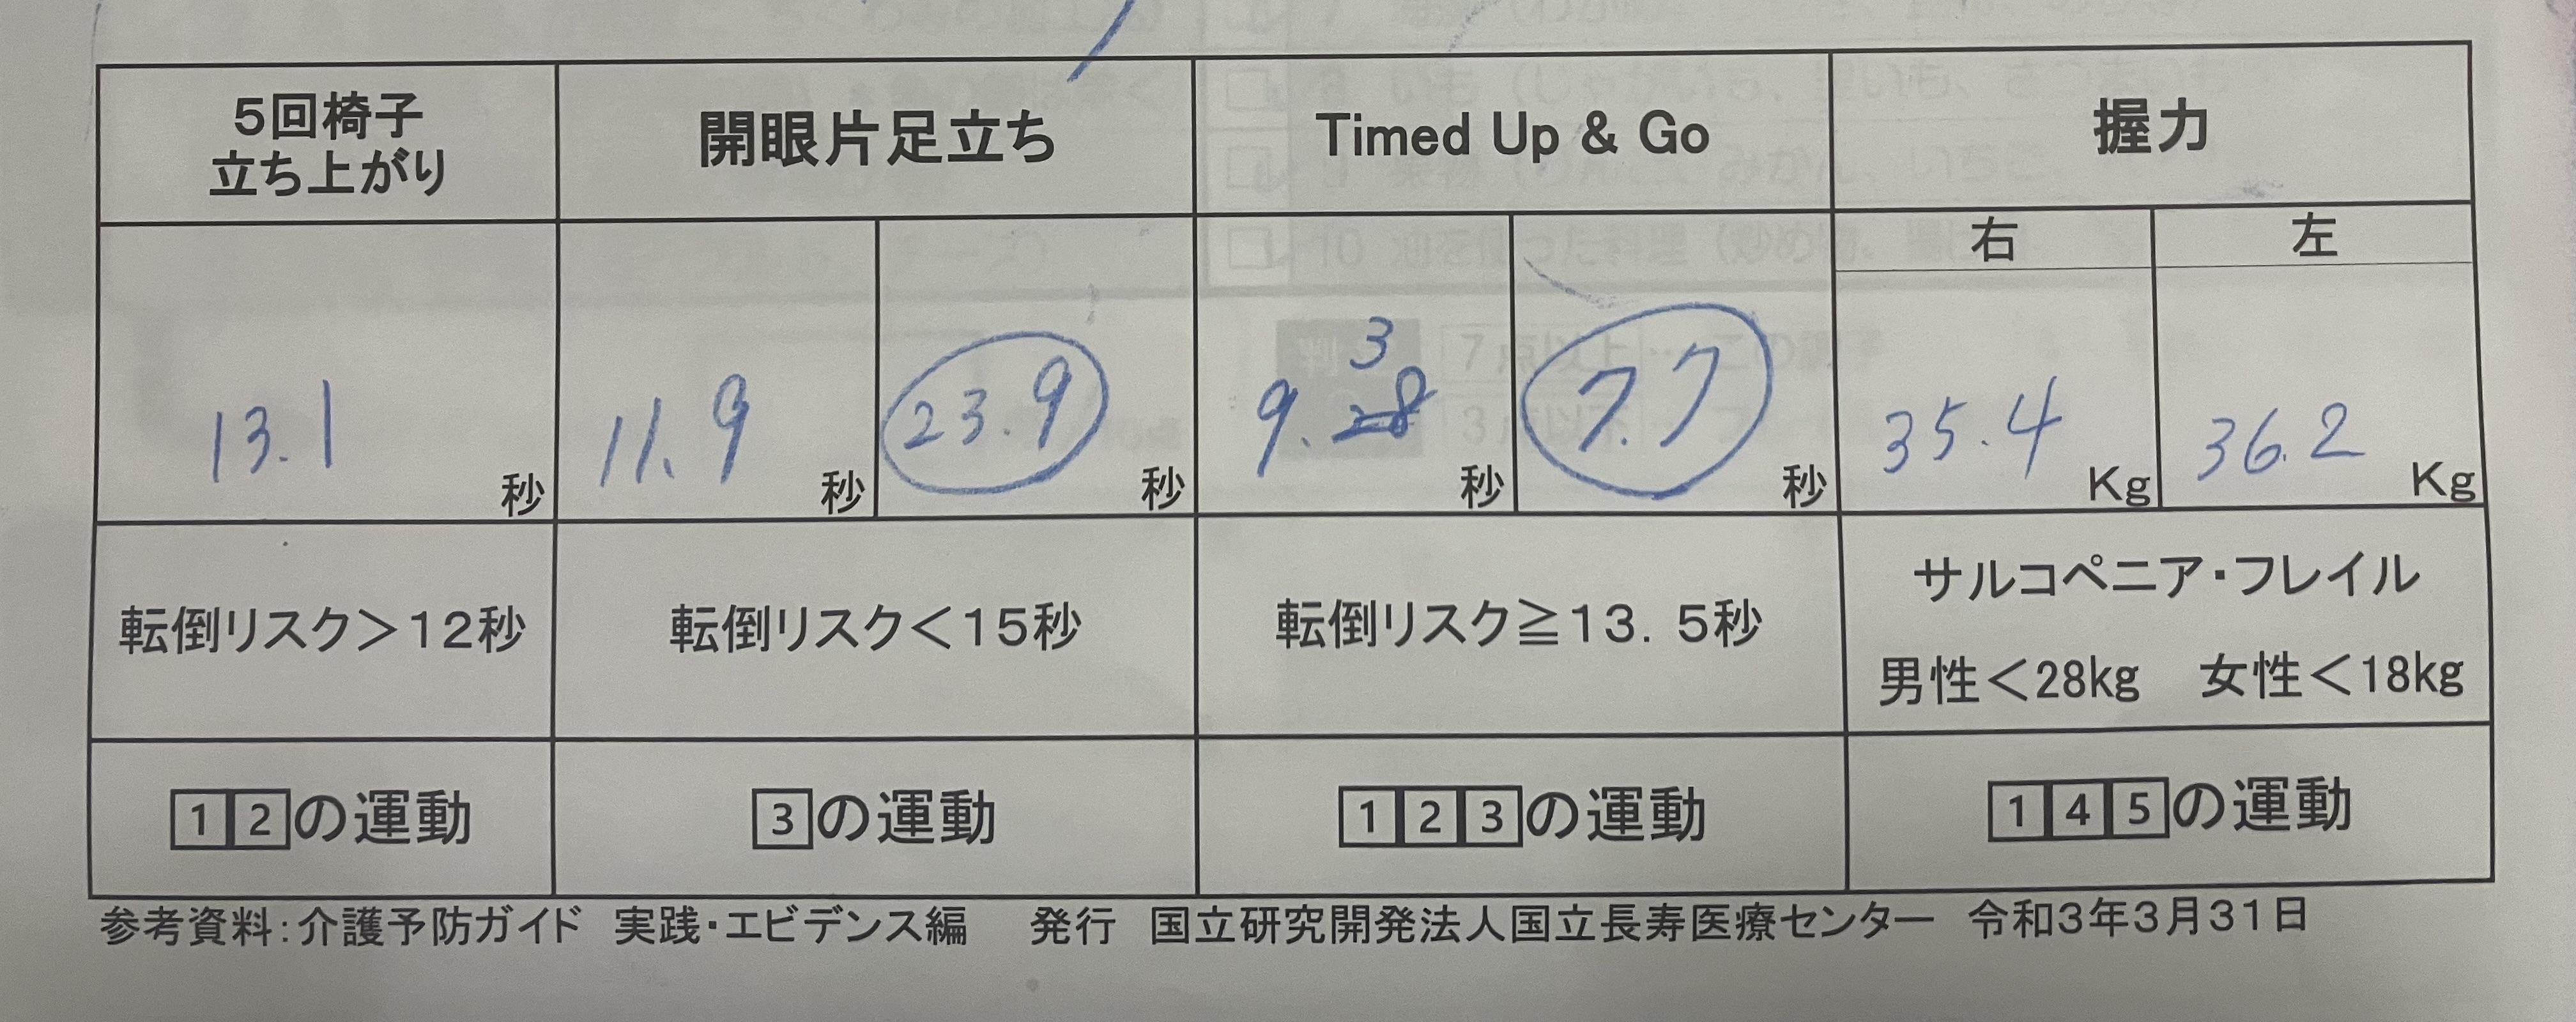 5回椅子
立ち上がり
開眼片足立ち
Timed Up & Go
握力
右
左
13.1 秒
11.9 秒
23.9 秒
9.3 秒
7.7 秒
35.4 Kg
36.2 Kg
転倒リスク>12秒
転倒リスク<15秒
転倒リスク≧13.5秒
サルコペニア・フレイル
男性<28kg 女性<18kg
1 2 の運動
3 の運動
1 2 3 の運動
1 4 5 の運動
参考資料:介護予防ガイド 実践・エビデンス編 発行 国立研究開発法人国立長寿医療センター 令和3年3月31日